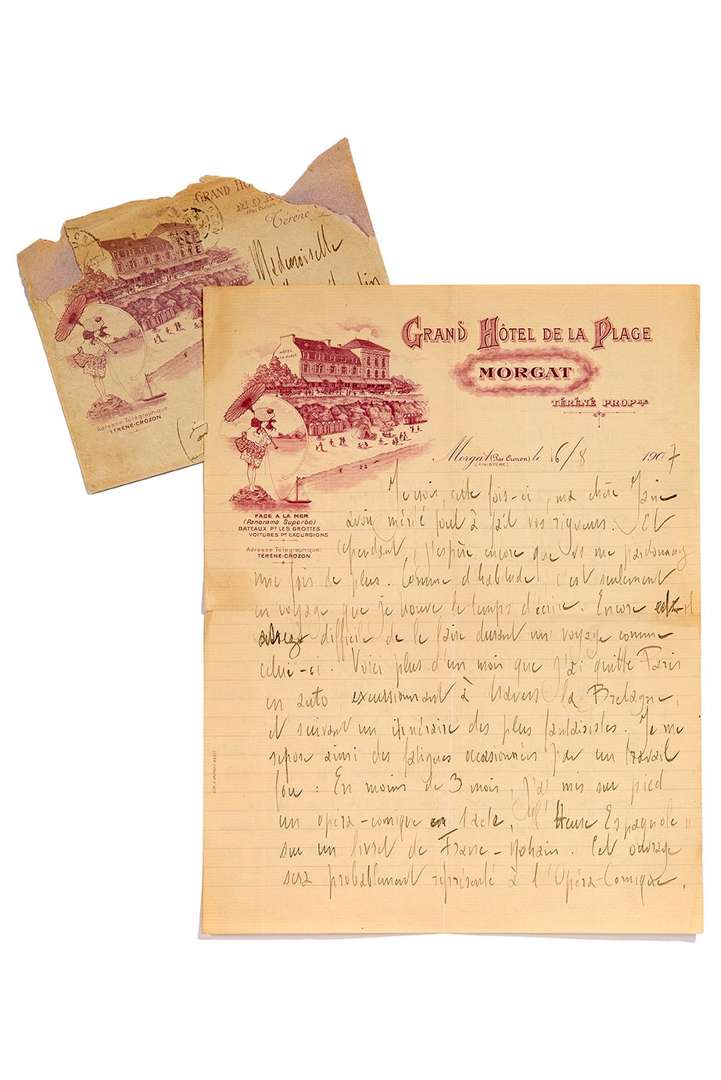 GRAND HÔ
Térène
Mademoiselle
Adresse Télégraphique
TÉRÉNÉ-CROZON
GRAND HÔTEL DE LA PLAGE
MORGAT
TÉRÉNÉ PROP
HÔTEL
DE LA PLAGE
Morgat (Près Crozon) le 16/8 1907
(FINISTÈRE)
FACE A LA MER
(Panorama Superbe)
BATEAUX Pr LES GROTTES
VOITURES Pr EXCURSIONS
Adresse Télégraphique:
TÉRÉNÉ-CROZON
Je crois, cette fois-ci, ma chère Jane
avoir mérité tout à fait vos rigueurs. Et
cependant, j'espère encore que vs me pardonnerez
une fois de plus. Comme d'habitude, c'est seulement
en voyage que je trouve le temps d'écrire. Encore est-il
difficile de le faire durant un voyage comme
celui-ci. Voici plus d'un mois que j'ai quitté Paris
en auto excursionnant à travers la Bretagne,
et suivant un itinéraire des plus fantaisistes. Je me
repose ainsi des fatigues occasionnées par un travail
fou : En moins de 3 mois, j'ai mis sur pied
un opéra-comique en 1 acte, "l'Heure Espagnole"
sur un livret de Franc-Nohain. Cet ouvrage
sera probablement représenté à l'Opéra-Comique,